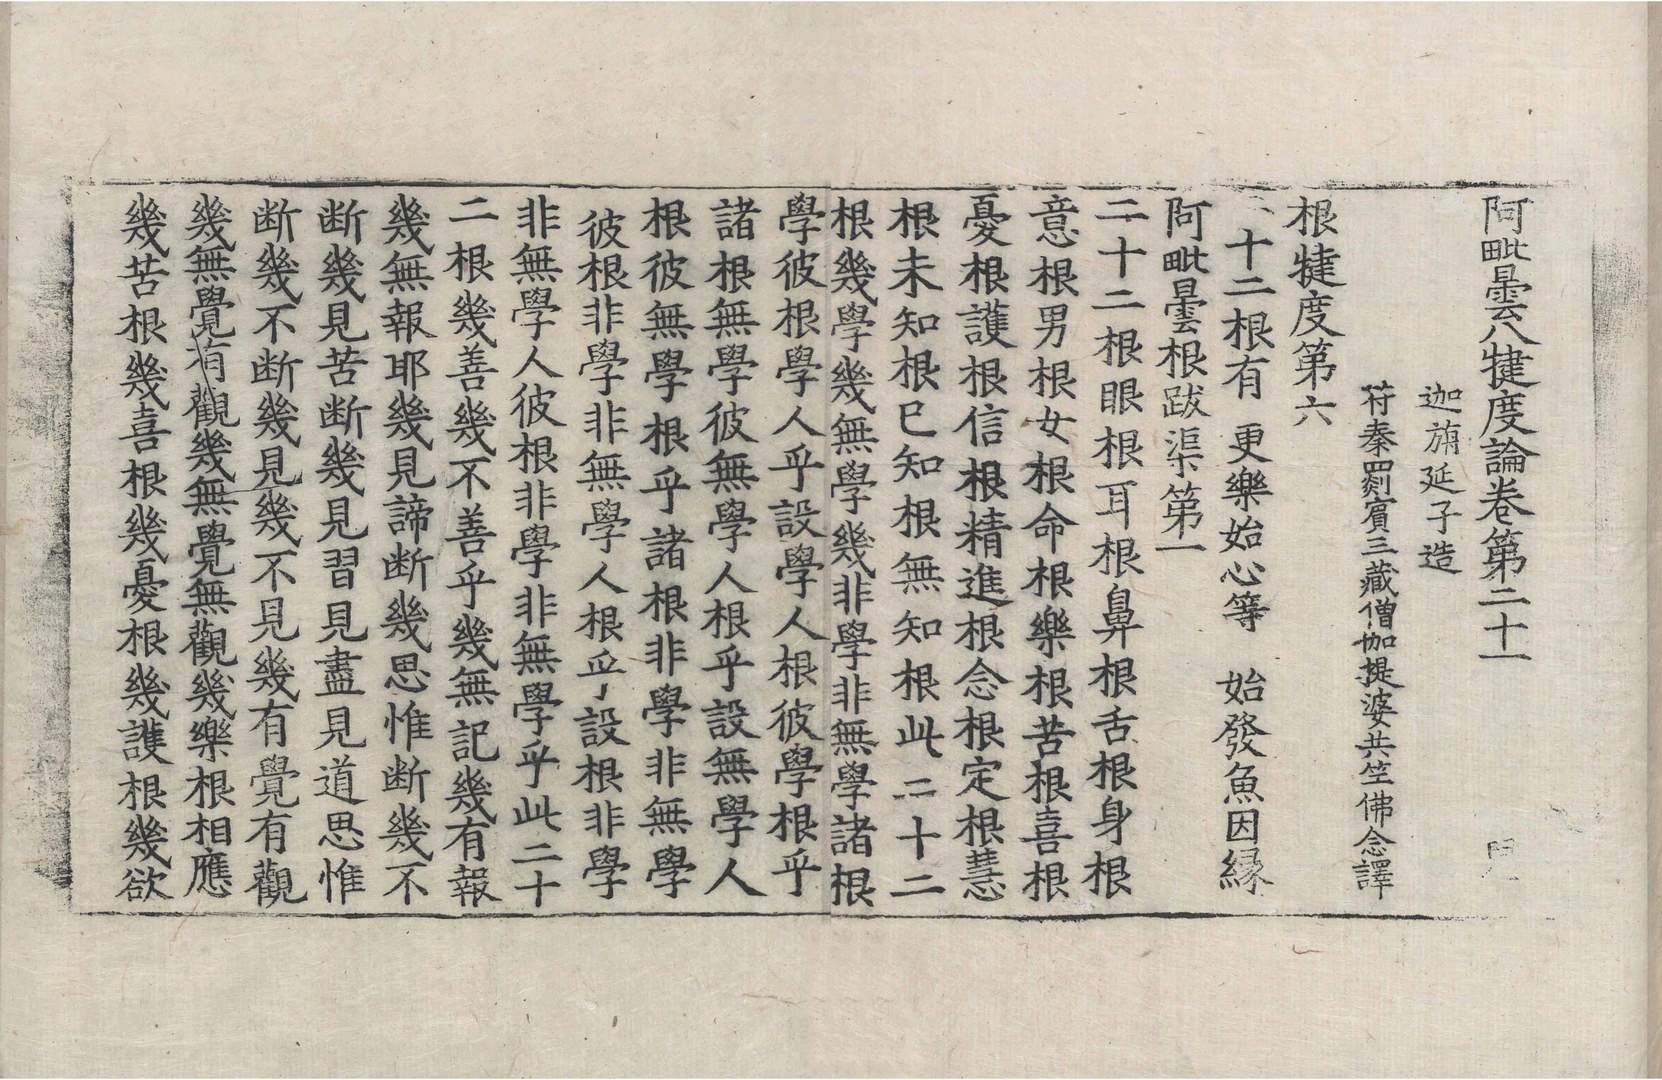 阿毗曇八犍度論卷第二十一
迦旃延子造
符秦罽賓三藏僧伽提婆共竺佛念譯
根犍度第六
二十二根有 更樂始心等 始發魚因緣
阿毗曇根跋渠第一
二十二根眼根耳根鼻根舌根身根
意根男根女根命根樂根苦根喜根
憂根護根信根精進根念根定根慧
根未知根已知根無知根此二十二
根幾學幾無學幾非學非無學諸根
學彼根學人乎設學人根彼學根乎
諸根無學彼無學人根乎設無學人
根彼無學根乎諸根非學非無學
彼根非學非無學人根乎設根非學
非無學人彼根非學非無學乎此二十
二根幾善幾不善乎幾無記幾有報
幾無報耶幾見諦断幾思惟断幾不
断幾見苦断幾見習見盡見道思惟
断幾不断幾見幾不見幾有覺有觀
幾無覺有觀幾無覺無觀幾樂根相應
幾苦根幾喜根幾憂根幾護根幾欲